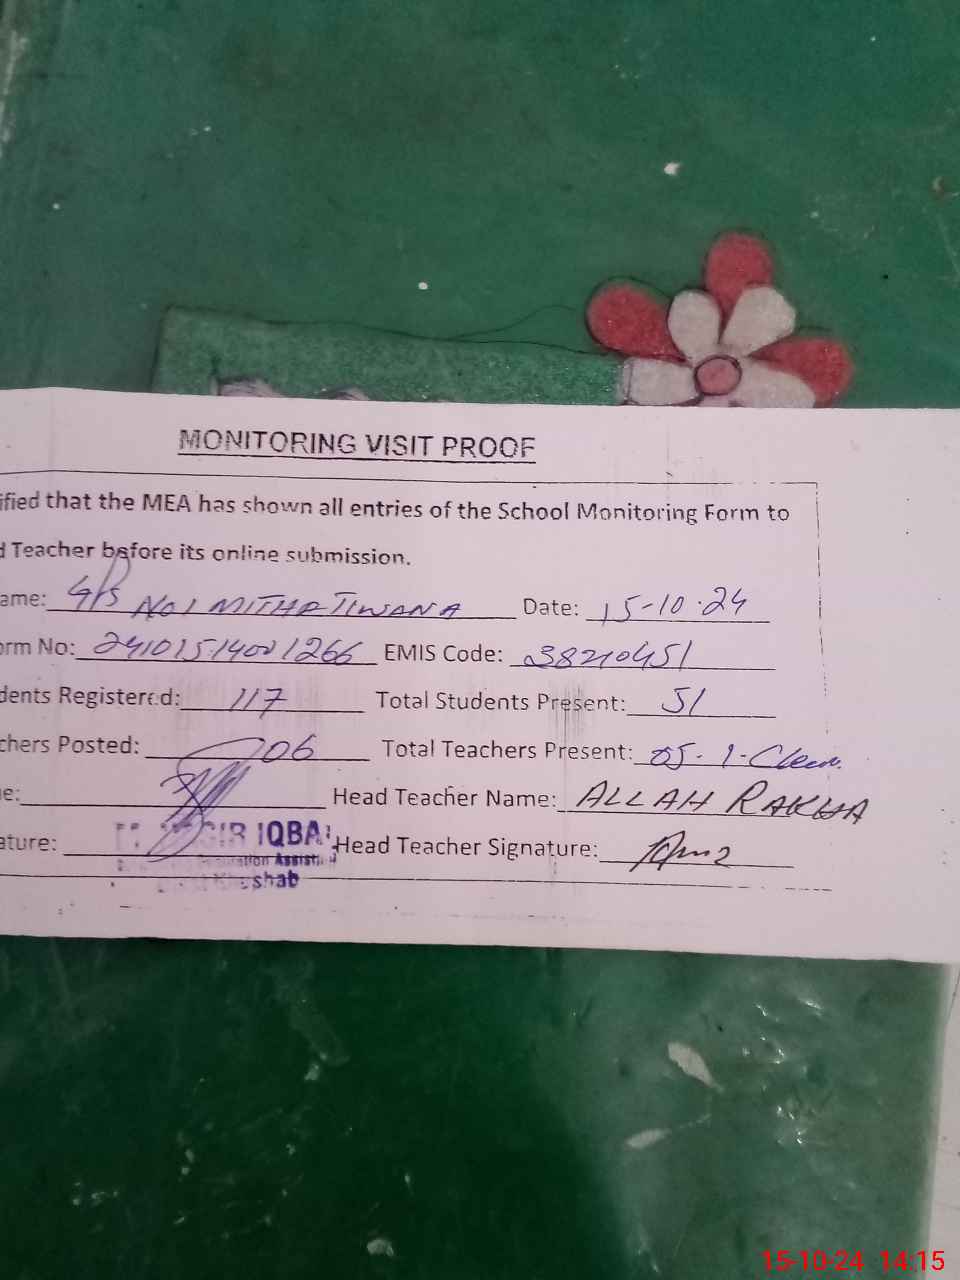 MONITORING VISIT PROOF
ified that the MEA has shown all entries of the School Monitoring Form to
d Teacher before its online submission.
ame: G/PS No 1 MITHA TIWANA Date: 15-10-24
orm No: 24101514001266 EMIS Code: 38210451
dents Registered: 117 Total Students Present: 51
chers Posted: 06 Total Teachers Present: 05-1-
e: Head Teacher Name: ALLAH RAKHA
ature: IQBA Head Teacher Signature:
Assist
shab
15-10-24 14:15